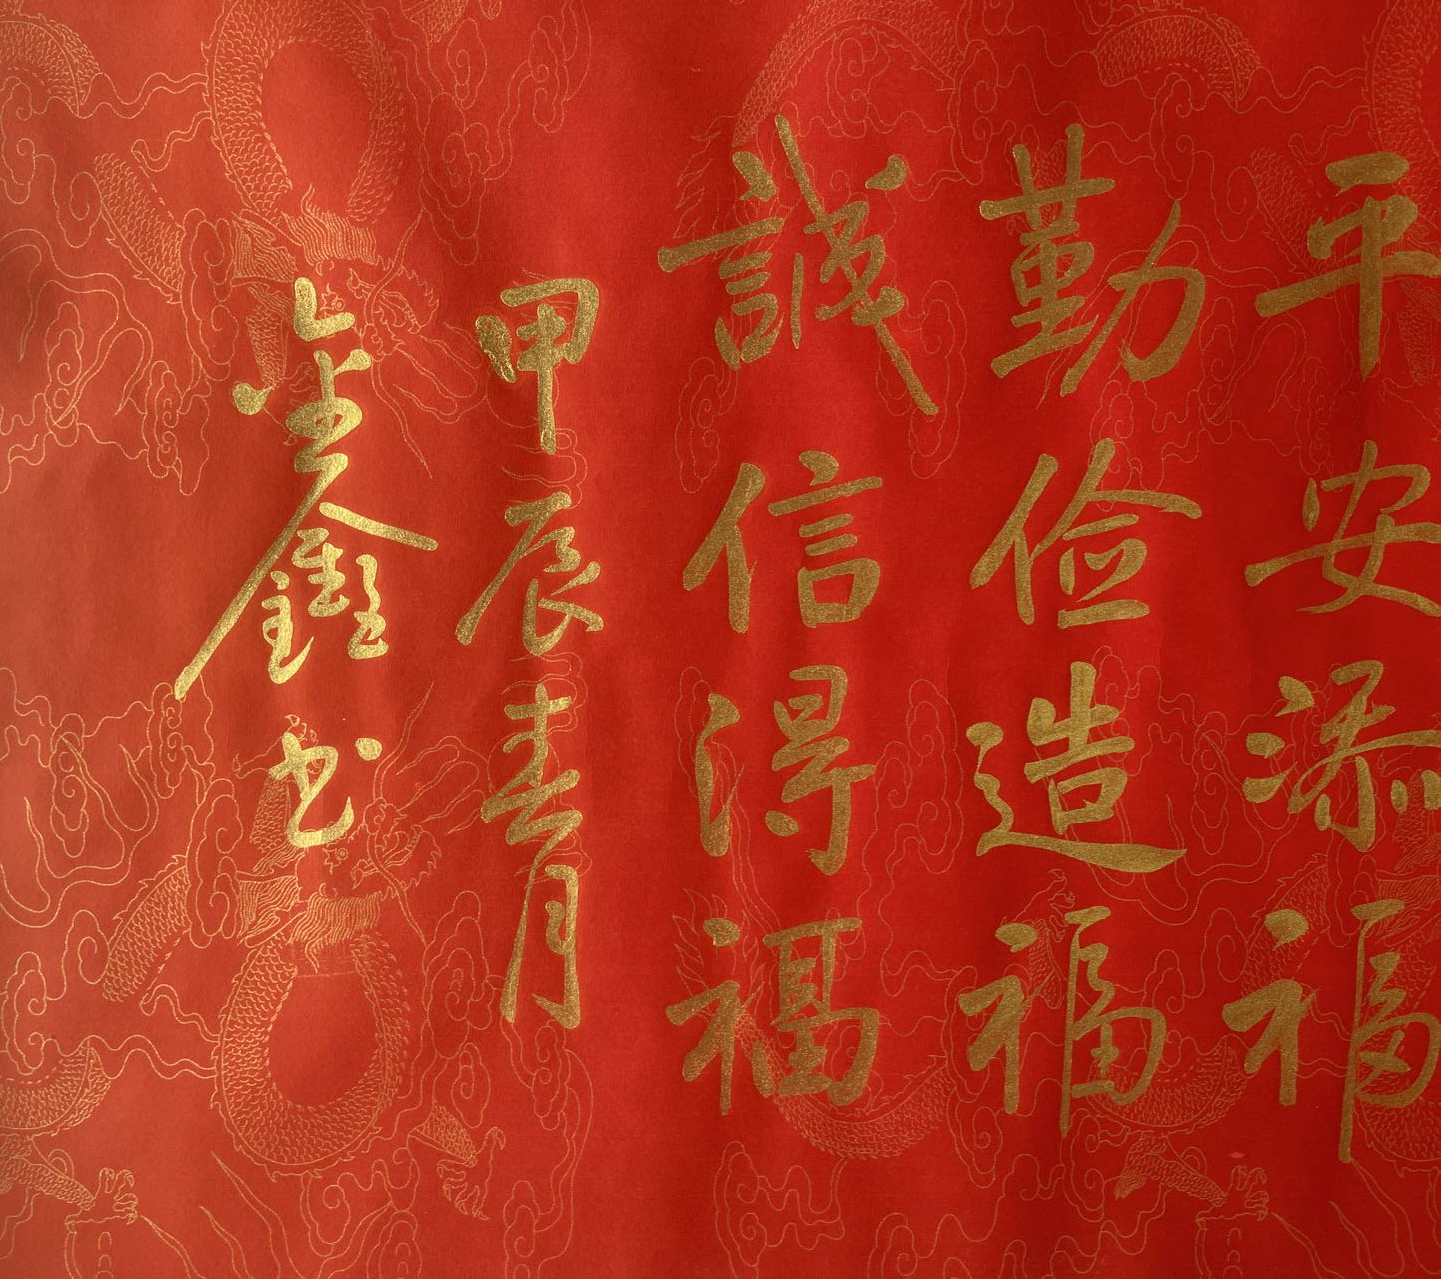 平安添福
勤俭造福
誠信得福
甲辰春月
金鑫书